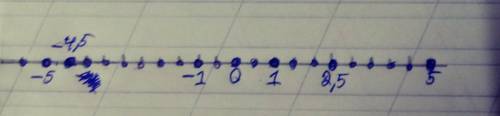 -4,5
-5 -1 0 1 2,5 5